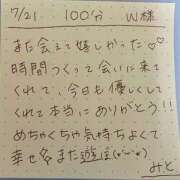 7/21 100分 W様
また会えて嬉しかった♡♡
時間つくって会いに来て
くれて、今日も優しくして
くれて本当にありがとう!!
めちゃくちゃ気持ちよくて
幸せ〜 また遊ぼ(*˙︶˙*)
みと